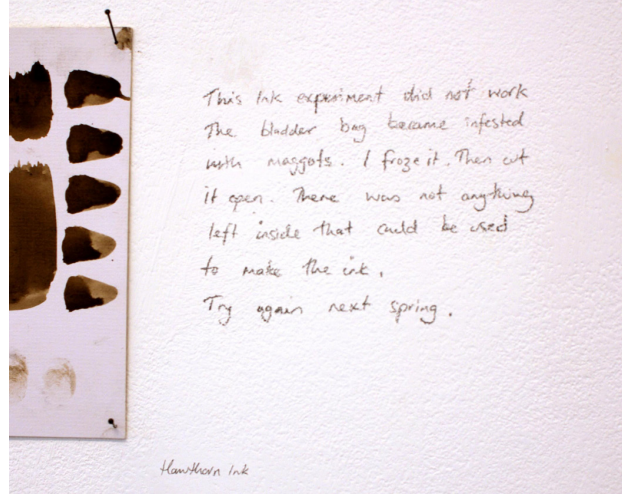 This Ink experiment did not work
The bladder bag became infested
with maggots. I froze it. Then cut
it open. There was not anything
left inside that could be used
to make the ink.
Try again next spring.
Hawthorn Ink